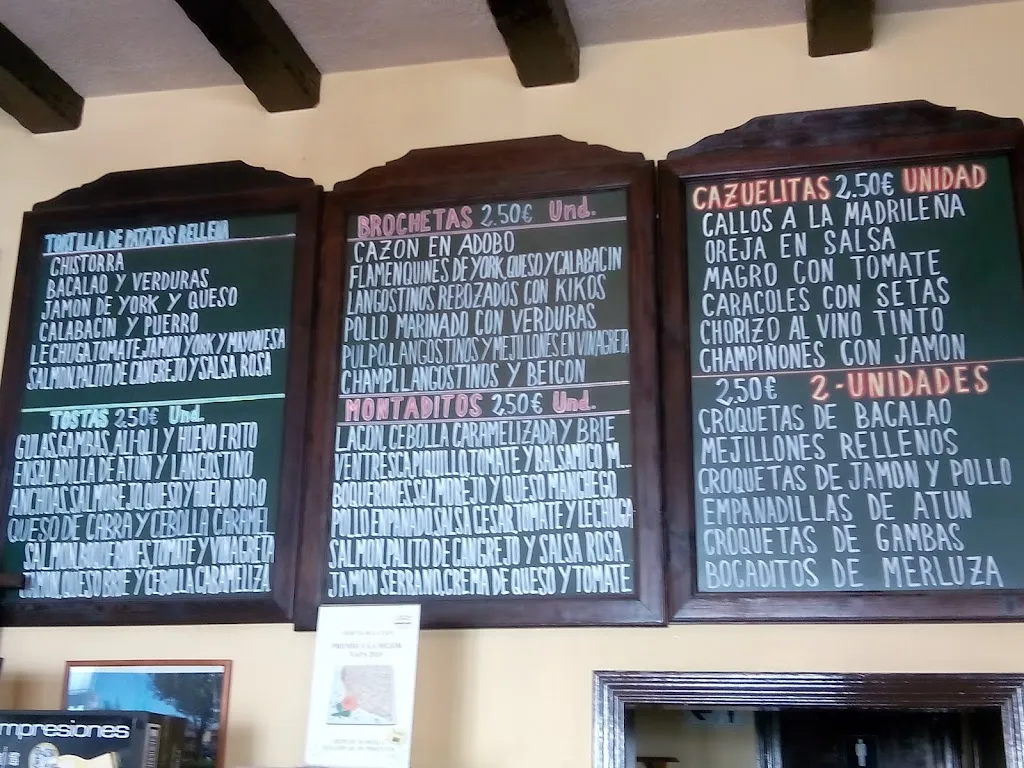 TORTILLA DE PATATAS RELLENA
CHISTORRA
BACALAO Y VERDURAS
JAMON DE YORK Y QUESO
CALABACIN Y PUERRO
LECHUGA,TOMATE,JAMON YORK Y MAYONESA
SALMON,PALITO DE CANGREJO Y SALSA ROSA
TOSTAS 2.50€ Und.
GULAS,GAMBAS, ALI-OLI Y HUEVO FRITO
ENSALADILLA DE ATUN Y LANGOSTINO
ANCHOAS,SALMOREJO,QUESO Y HUEVO DURO
QUESO DE CABRA Y CEBOLLA CARAMEL
SALMON,BOQUERONES,TOMATE Y VINAGRETA
JAMON,QUESO BRIE Y CEBOLLA CARAMELIZA
BROCHETAS 2.50€ Und.
CAZON EN ADOBO
FLAMENQUINES DE YORK,QUESO Y CALABACIN
LANGOSTINOS REBOZADOS CON KIKOS
POLLO MARINADO CON VERDURAS
PULPO,LANGOSTINOS Y MEJILLONES EN VINAGRETA
CHAMPI,LANGOSTINOS Y BEICON
MONTADITOS 2,50€ Und.
LACON,CEBOLLA CARAMELIZADA Y BRIE
VENTRESCA,PIQUILLO,TOMATE Y BALSAMICO M...
BOQUERONES,SALMOREJO Y QUESO MANCHEGO
POLLO EMPANADO,SALSA CESAR,TOMATE Y LECHUGA
SALMON,PALITO DE CANGREJO Y SALSA ROSA
JAMON SERRANO,CREMA DE QUESO Y TOMATE
CAZUELITAS 2,50€ UNIDAD
CALLOS A LA MADRILEÑA
OREJA EN SALSA
MAGRO CON TOMATE
CARACOLES CON SETAS
CHORIZO AL VINO TINTO
CHAMPIÑONES CON JAMON
2,50€ 2-UNIDADES
CROQUETAS DE BACALAO
MEJILLONES RELLENOS
CROQUETAS DE JAMON Y POLLO
EMPANADILLAS DE ATUN
CROQUETAS DE GAMBAS
BOCADITOS DE MERLUZA
PREMIO A LA MEJOR
TAPA
mpresiones